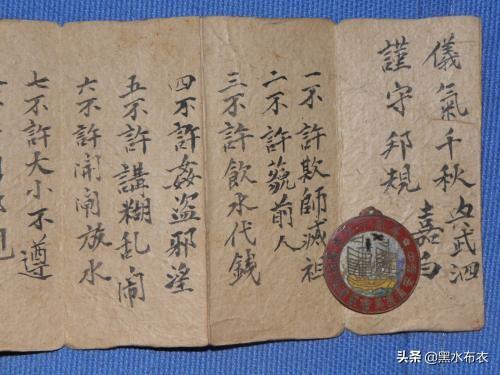 儀氣千秋 武泗
謹守邦規 嘉白
一不許欺師滅祖
二不許藐前人
三不許飲水代錢
四不許姦盜邪淫
五不許講糊乱鬧
六不許開閘放水
七不許大小不遵
头条 @黑水布衣